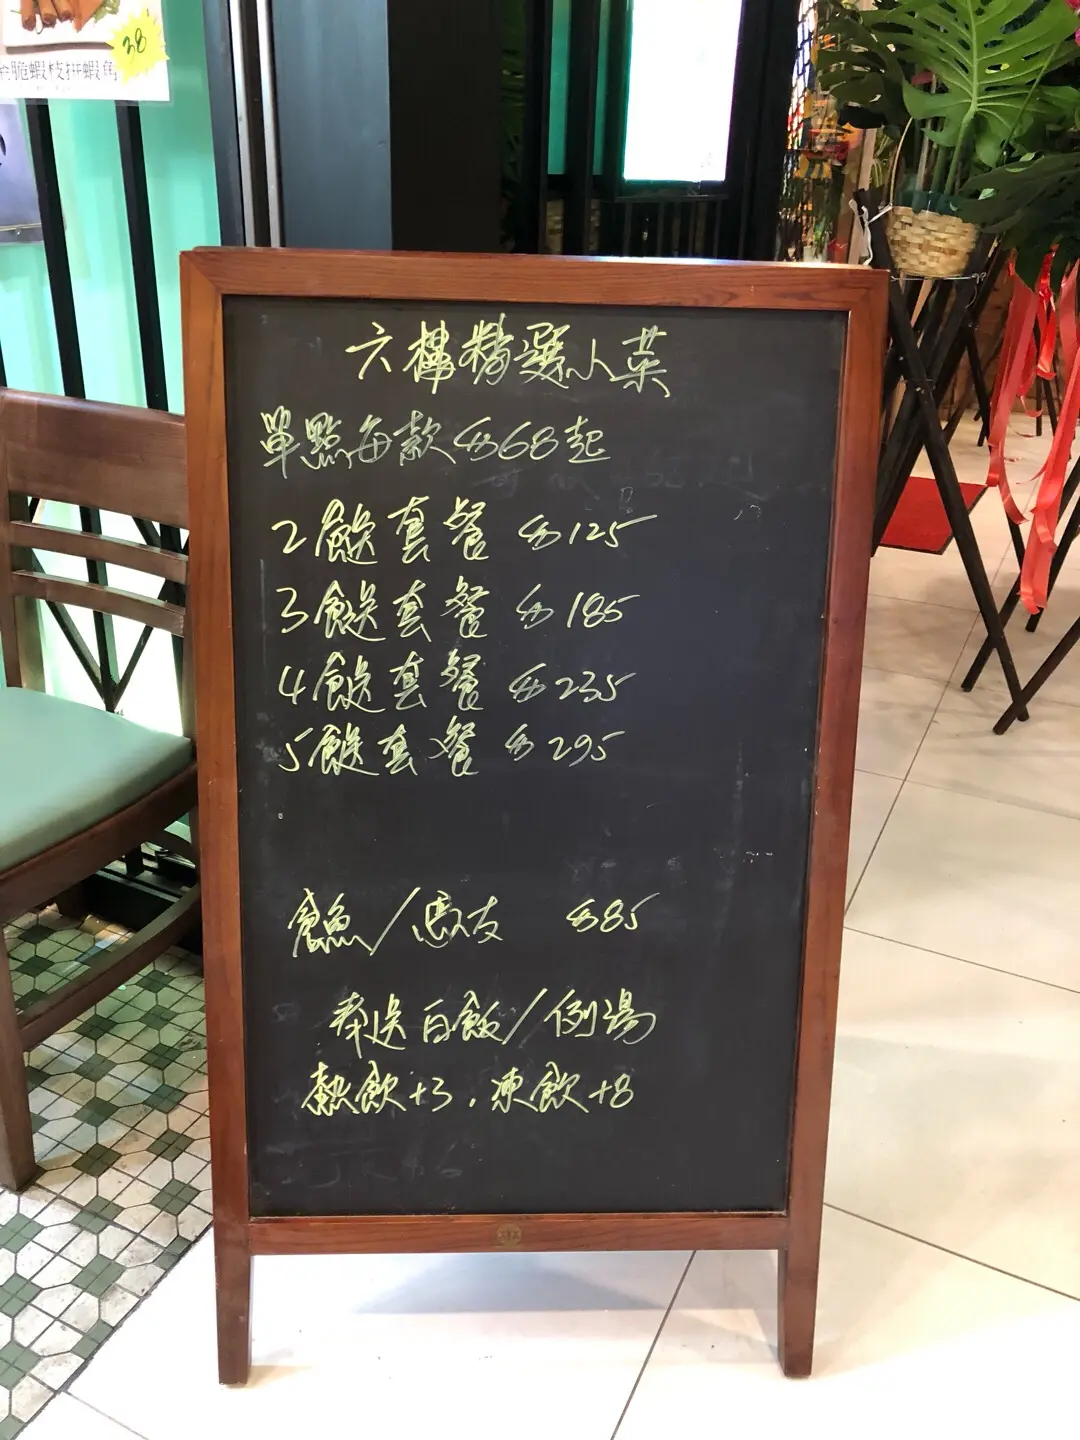 38
脆蝦枝拼蝦
六樓精選小菜
單點每款 $68起
2餸套餐 $125
3餸套餐 $185
4餸套餐 $235
5餸套餐 $295
倉魚/馬友 $85
奉送白飯/例湯
熱飲+3,凍飲+8